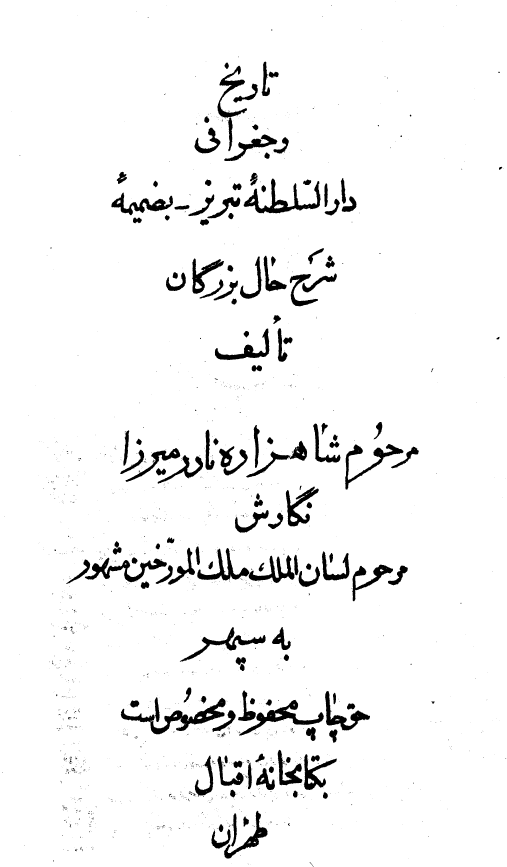 تاریخ
و جغرافی
دار السّلطنهٔ تبریز ـ بضمیمهٔ
شرح حال بزرگان
تألیف
مرحوم شاهزاده نادر میرزا
نگارش
مرحوم لسان الملك ملك المورّخین مشهور
به سپهر
حق چاپ محفوظ و مخصوص است
بکتابخانهٔ اقبال
طهران